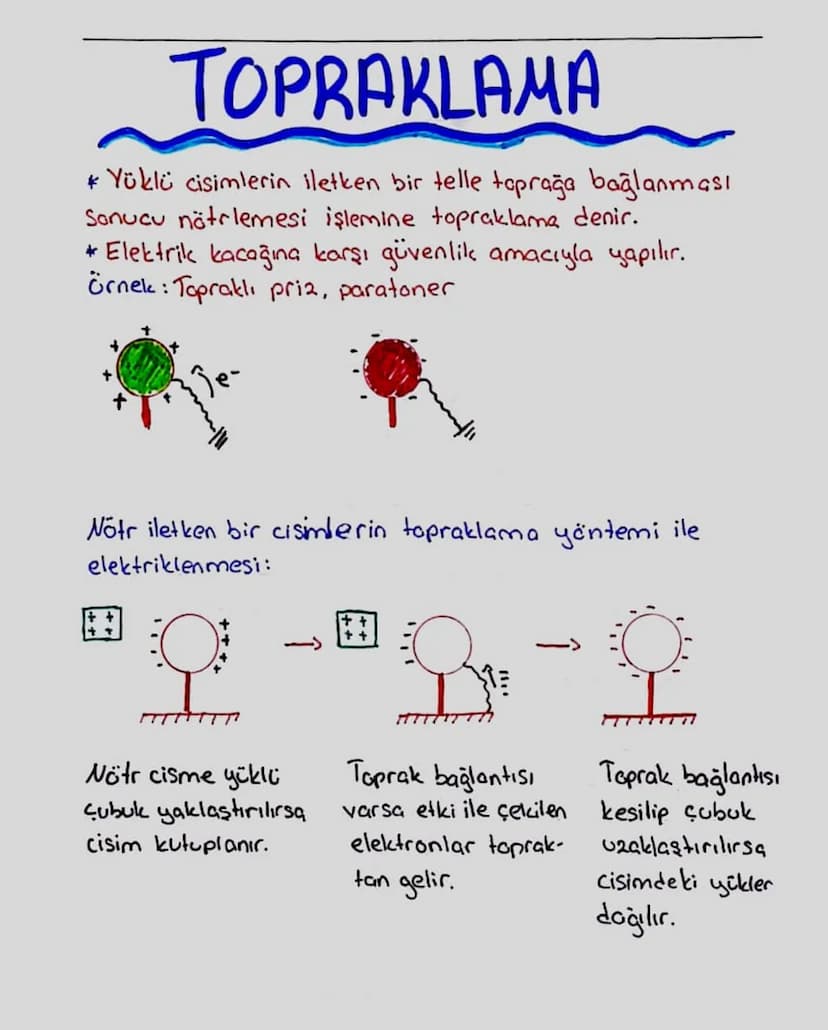 TOPRAKLAMA
* Yüklü cisimlerin iletken bir telle toprağa bağlanması
sonucu nötrlemesi işlemine topraklama denir.
* Elektrik kaçağına karşı güvenlik amacıyla yapılır.
Örnek: Topraklı priz, paratoner
+ + + + + + e-
- - - - - -
Nötr iletken bir cisimlerin topraklama yöntemi ile
elektriklenmesi:
Nötr cisme yüklü
çubuk yaklaştırılırsa
cisim kutuplanır.
Toprak bağlantısı
varsa etki ile çekilen
elektronlar toprak-
tan gelir.
Toprak bağlantısı
kesilip çubuk
uzaklaştırılırsa
cisimdeki yükler
dağılır.